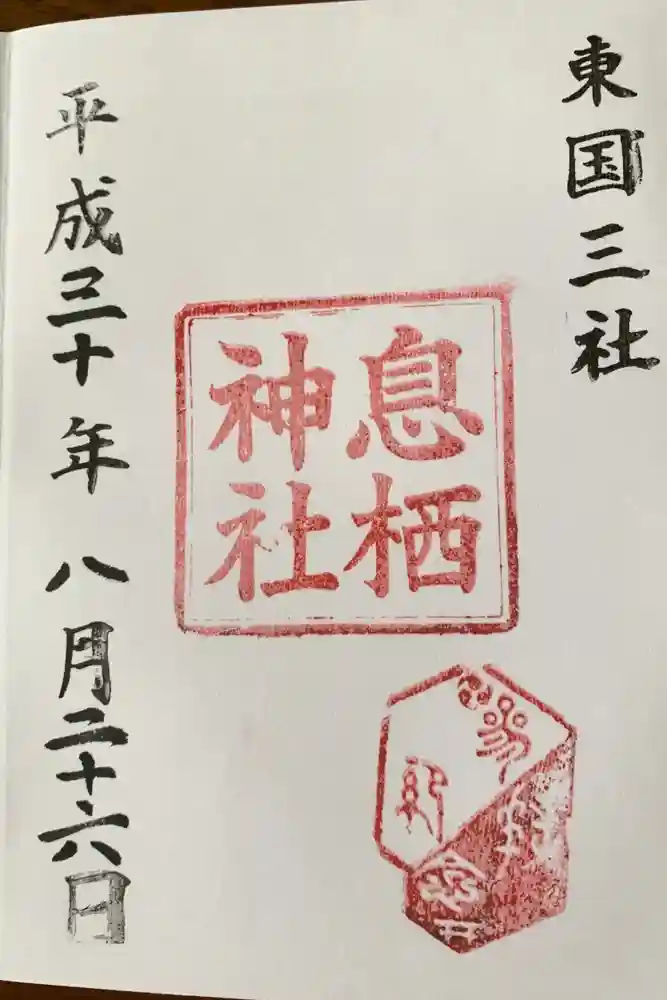 東国三社
息栖
神社
平成三十年 八月二十六日